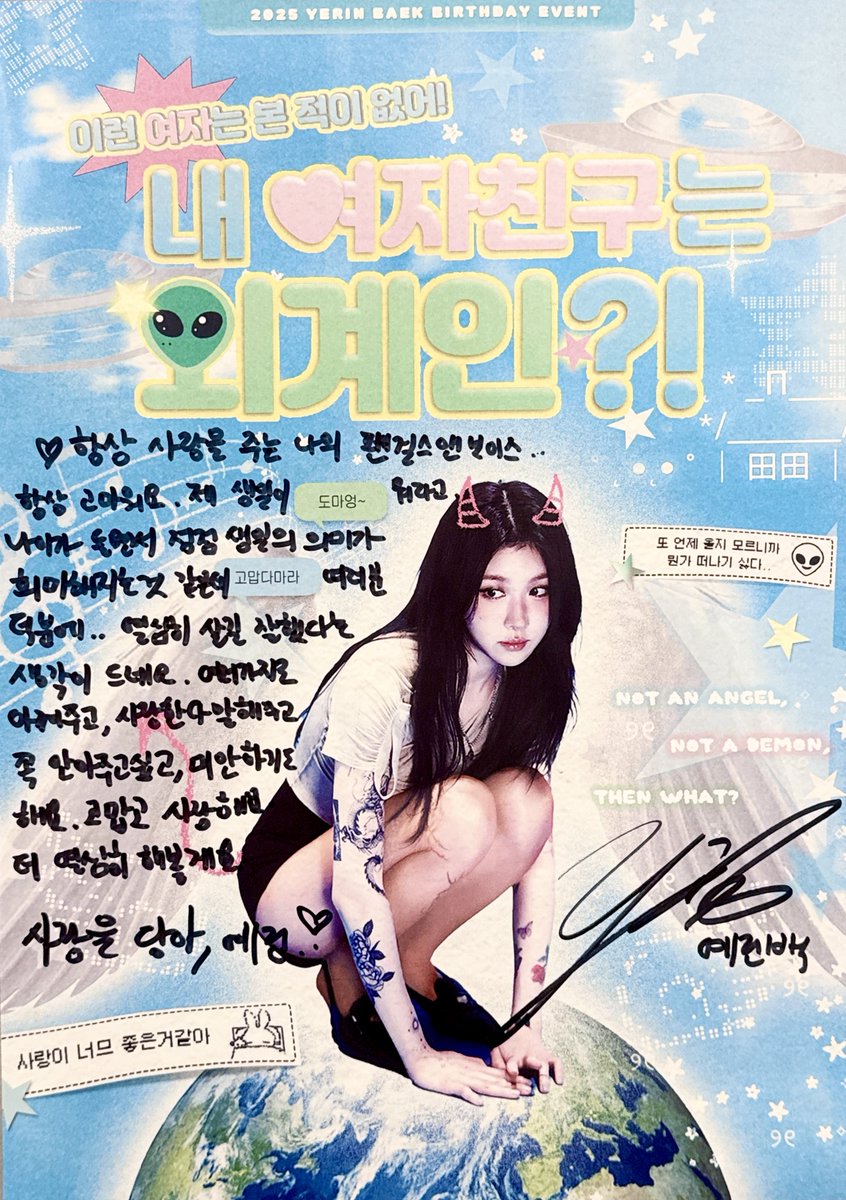 2025 YERIN BAEK BIRTHDAY EVENT
이런 여자는 본 적이 없어!
내 여자친구는
외계인?!
♡ 항상 사랑을 주는 나의 팬걸스앤보이스..
항상 고마워요. 제 생일이 도마엉~ 뭐라고,
나이가 들면서 점점 생일의 의미가
희미해지는것 같은데 고맙다마라 여러분
덕분에.. 열심히 살길 잘했다는
생각이 드네요. 여러가지로
아껴주고, 사랑한다 말해주고
꼭 안아주고싶고, 미안하기도
해요. 고맙고 사랑해요
더 열심히 해볼게요
사랑을 담아, 예린..♡
또 언제 올지 모르니까
뭔가 떠나기 싫다..
NOT AN ANGEL,
NOT A DEMON,
THEN WHAT?
예린백
사랑이 너므 좋은거같아